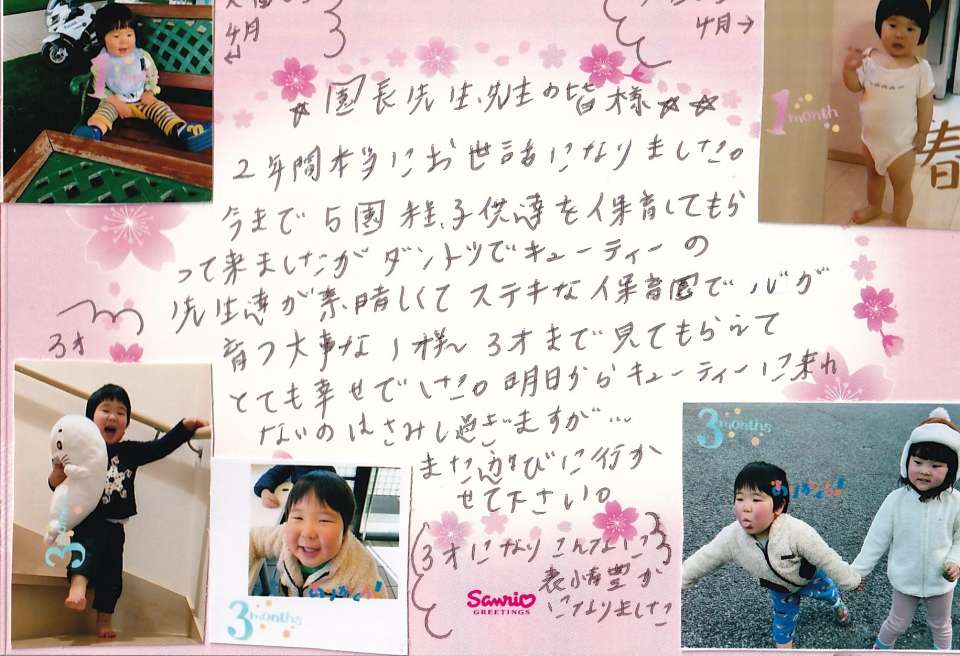 4月
4月→
☆園長先生、先生の皆様☆☆
2年間本当にお世話になりました。
今まで5園程、子供達を保育してもら
って来ましたがダントツでキューティーの
先生達が素晴しくてステキな保育園で心が
育つ大事な1才〜3才まで見てもらえて
とても幸せでした。明日からキューティーに来れ
ないのはさみし過ぎますが…
また遊びに行か
せて下さい。
3才
(3才になりこんなに
表情豊か
になりました
1 month
春
3 months
3 months
3
Sanrio
GREETINGS